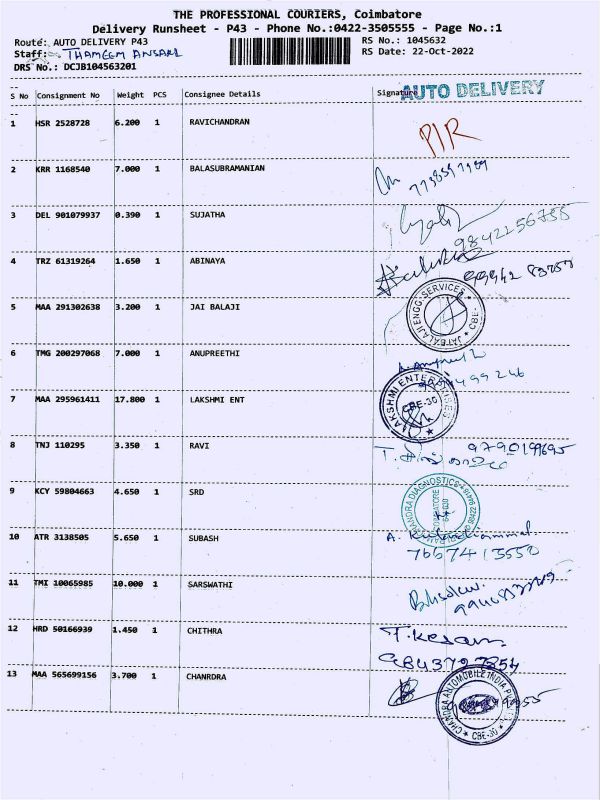 THE PROFESSIONAL COURIERS, Coimbatore
Delivery Runsheet - P43 - Phone No.:0422-3505555 - Page No.:1
Route: AUTO DELIVERY P43 RS No.: 1045632
Staff: THAMEEM ANSARI RS Date: 22-Oct-2022
DRS No.: DCJB104563201
S No Consignment No Weight PCS Consignee Details Signature AUTO DELIVERY
1 HSR 2528728 6.200 1 RAVICHANDRAN PIR
2 KRR 1168540 7.000 1 BALASUBRAMANIAN
3 DEL 901079937 0.390 1 SUJATHA 9842256755
4 TRZ 61319264 1.650 1 ABINAYA
5 MAA 291302638 3.200 1 JAI BALAJI JAI BALAJI ENGG. SERVICES CBE-
6 TMG 200297068 7.000 1 ANUPREETHI
7 MAA 295961411 17.800 1 LAKSHMI ENT LAKSHMI ENTERPRISES CBE-30
8 TNJ 110295 3.350 1 RAVI 9790199695
9 KCY 59804663 4.650 1 SRD DIAGNOSTICS
10 ATR 3138505 5.650 1 SUBASH A.
7667413550
11 TMI 10065985 10.000 1 SARSWATHI
12 HRD 50166939 1.450 1 CHITHRA T. Kesavan
9843797854
13 MAA 565699156 3.700 1 CHANRDRA CHANDRA AUTOMOBILE INDIA CBE-30